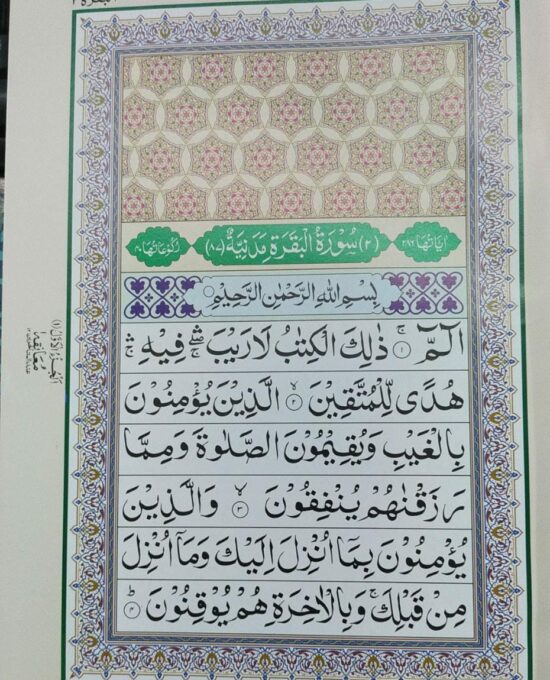 اٰيَاتُهَا ٢٨٦ (٢) سُوْرَةُ الْبَقَرَةِ مَدَنِيَّةٌ (٨٧) رُكُوْعَاتُهَا ٤٠
بِسْمِ اللّٰهِ الرَّحْمٰنِ الرَّحِيْمِ
الٓمّٓ ۚ ١ ذٰلِكَ الْكِتٰبُ لَا رَيْبَ ۛۖ فِيْهِ ۛ
هُدًى لِّلْمُتَّقِيْنَ ۙ ٢ الَّذِيْنَ يُؤْمِنُوْنَ
بِالْغَيْبِ وَيُقِيْمُوْنَ الصَّلٰوةَ وَمِمَّا
رَزَقْنٰهُمْ يُنْفِقُوْنَ ۙ ٣ وَالَّذِيْنَ
يُؤْمِنُوْنَ بِمَآ اُنْزِلَ اِلَيْكَ وَمَآ اُنْزِلَ
مِنْ قَبْلِكَ ۚ وَبِالْاٰخِرَةِ هُمْ يُوْقِنُوْنَ ؕ ٤
اَلْجُزْءُ الْاَوَّلُ (١)
معانقة ١